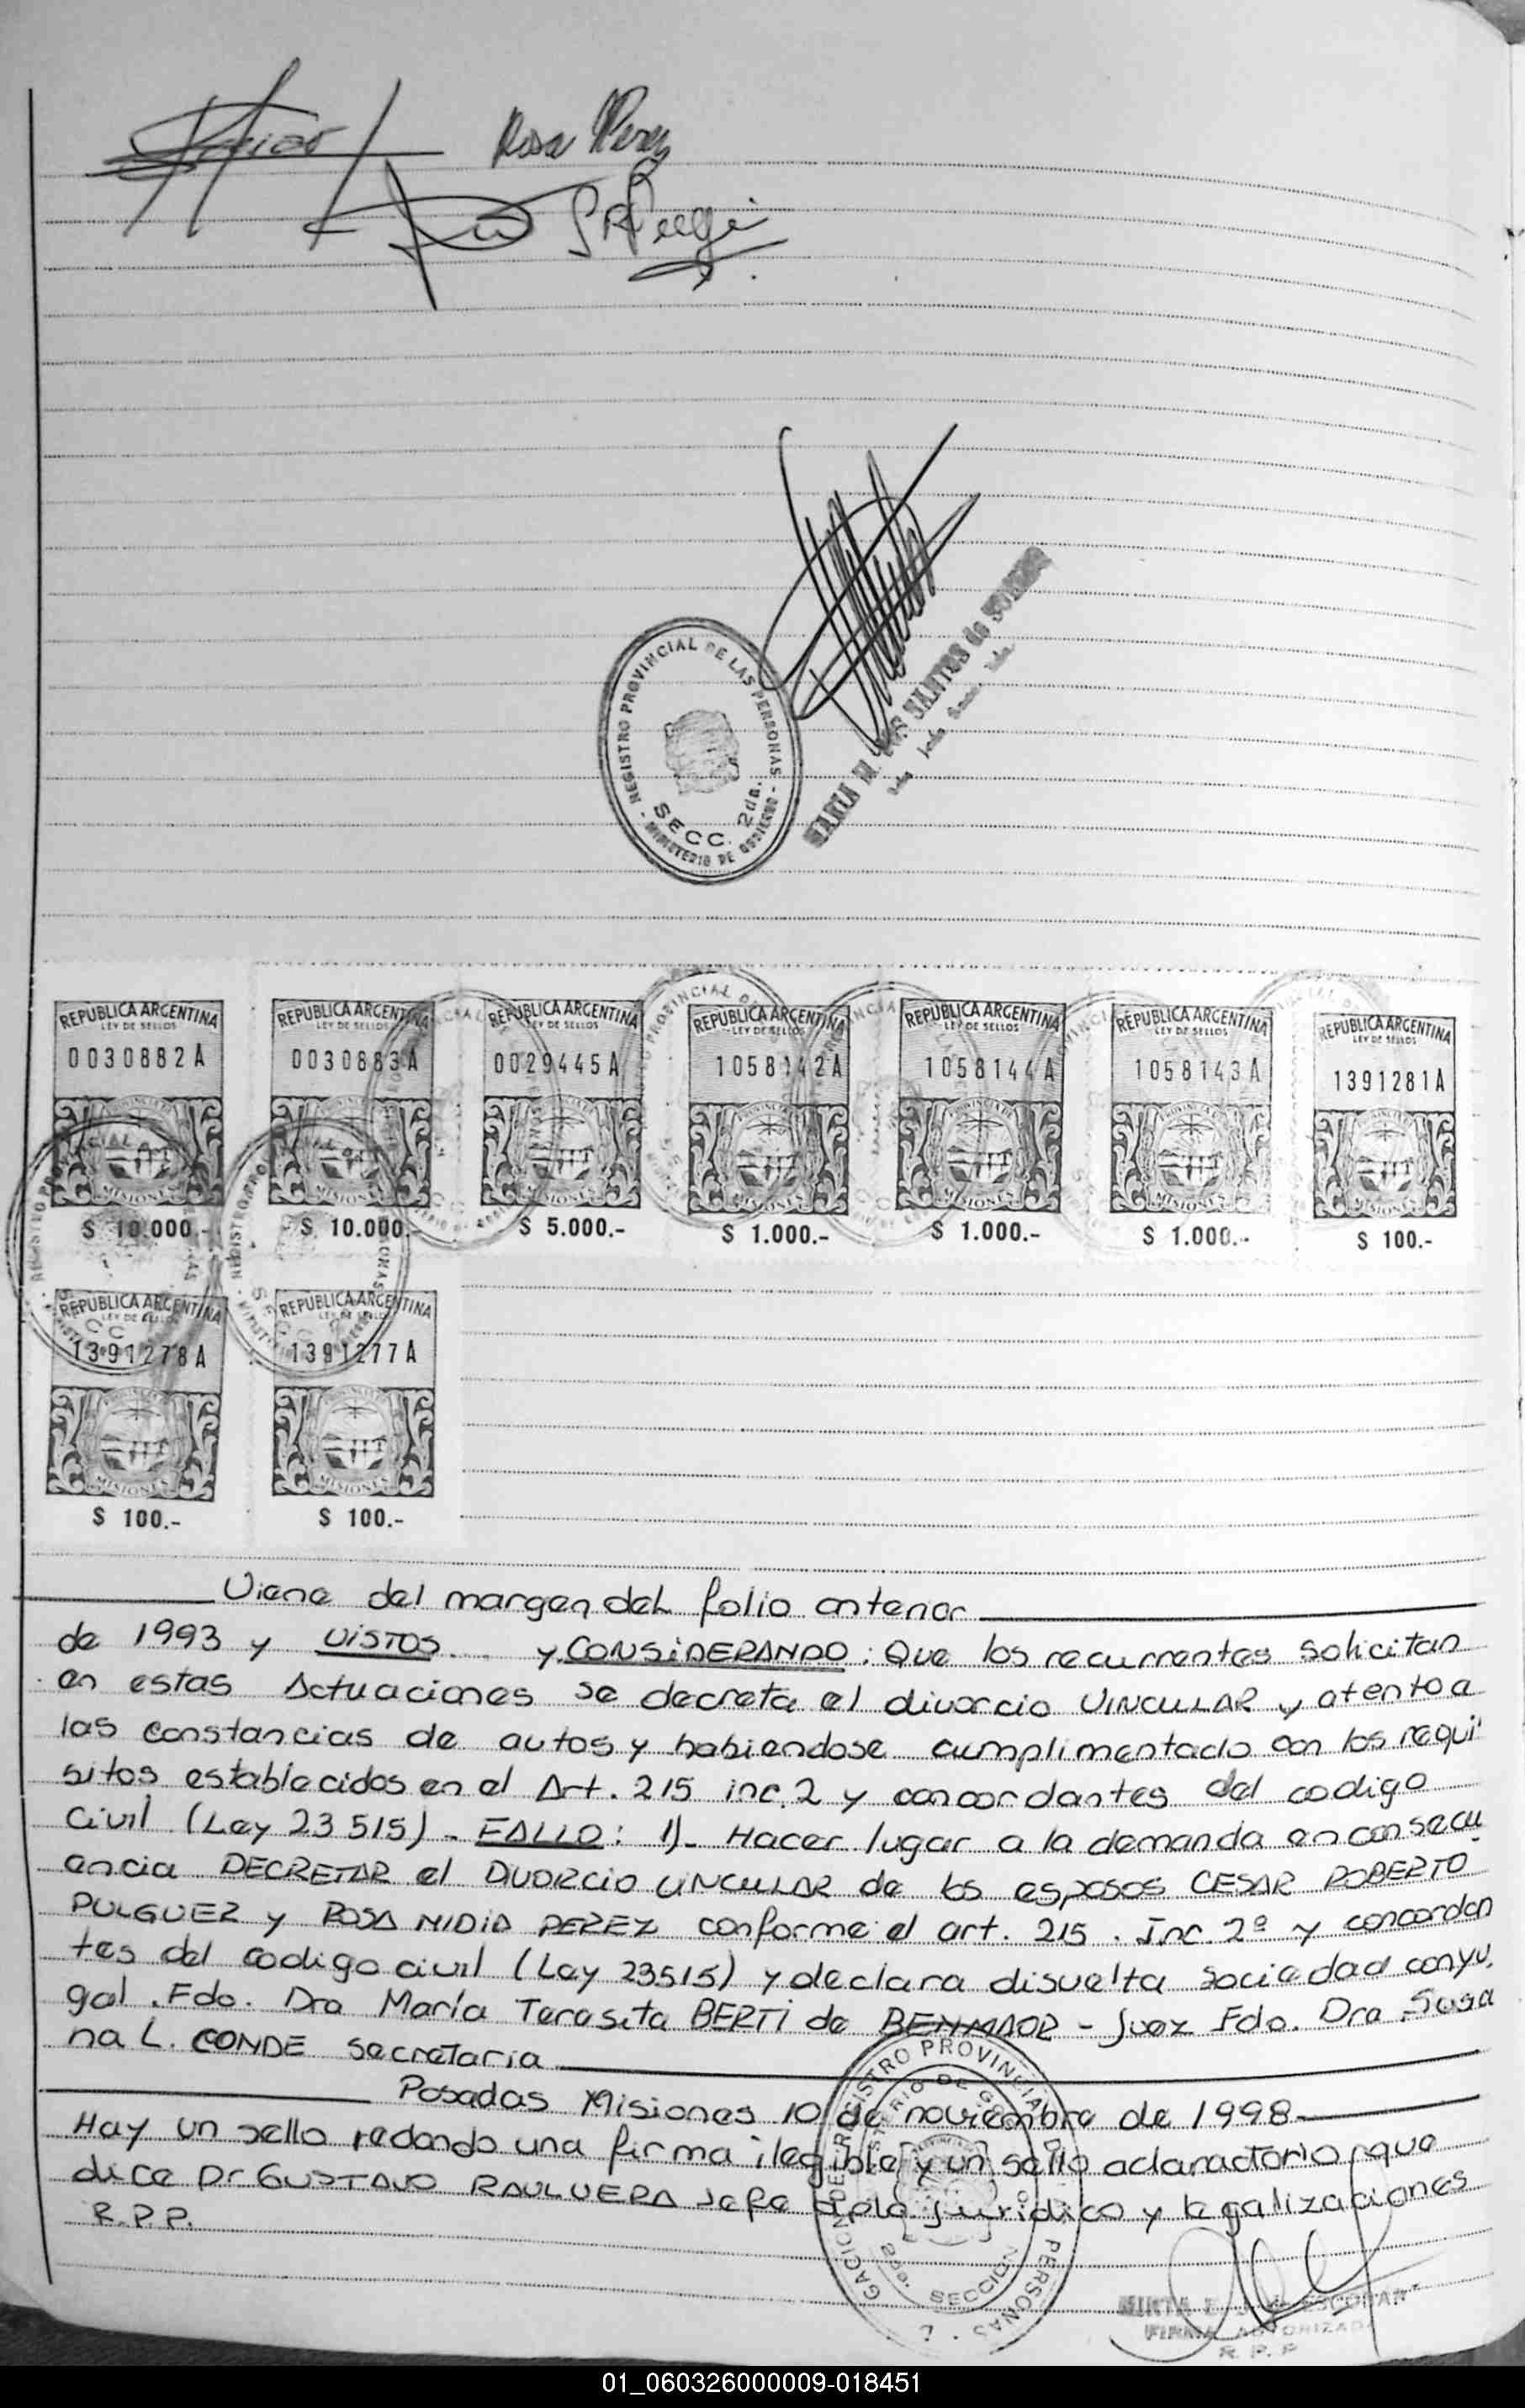 Rosa Perez
REGISTRO PROVINCIAL DE LAS PERSONAS
SECC. 2da.
- MINISTERIO DE GOBIERNO -
MARIA M. SANTOS de
REPUBLICA ARGENTINA REPUBLICA ARGENTINA REPUBLICA ARGENTINA REPUBLICA ARGENTINA REPUBLICA ARGENTINA REPUBLICA ARGENTINA REPUBLICA ARGENTINA
LEY DE SELLOS LEY DE SELLOS LEY DE SELLOS LEY DE SELLOS LEY DE SELLOS LEY DE SELLOS LEY DE SELLOS
0030882A 0030883A 0029445A 1058142A 1058144A 1058143A 1391281A
MISIONES MISIONES MISIONES MISIONES MISIONES MISIONES MISIONES
$ 10.000.- $ 10.000.- $ 5.000.- $ 1.000.- $ 1.000.- $ 1.000.- $ 100.-
REPUBLICA ARGENTINA REPUBLICA ARGENTINA
LEY DE SELLOS LEY DE SELLOS
1391278A 1391277A
MISIONES MISIONES
$ 100.- $ 100.-
Viene del margen del folio anterior
de 1993 y VISTOS... y CONSIDERANDO: Que los recurrentes solicitan
en estas Actuaciones se decreta el divorcio VINCULAR y atento a
las constancias de autos y habiendose cumplimentado con los requi
sitos establecidos en el Art. 215 inc. 2 y concordantes del codigo
Civil (Ley 23515) - FALLO: 1)- Hacer lugar a la demanda en consecu
encia DECRETAR el DIVORCIO VINCULAR de los esposos CESAR ROBERTO
PULGUER y ROSA NIDIA PEREZ conforme el art. 215. Inc. 2º y concordan
tes del codigo civil (Ley 23515) y declara disuelta sociedad conyu.
gal. Fdo. Dra María Teresita BERTI de BENMAOR - Juez Fdo. Dra. Susa
na L. CONDE Secretaria
Posadas Misiones 10 de noviembre de 1998
Hay un sello redondo una firma ilegible y un sello aclaratorio que
dice Dr GUSTAVO RAUL VERA Jefe Dpto Juridico y legalizaciones
R.P.P.
REGISTRO PROVINCIAL PERSONAS
2da. SECCION
MIRTA ESCOBAR
FIRMA AUTORIZADA
R.P.P
01_060326000009-018451